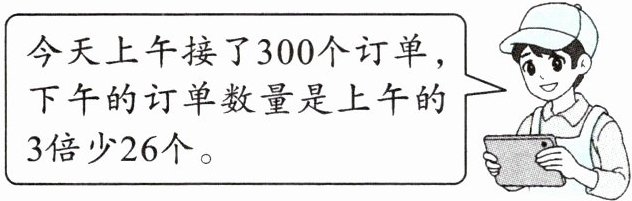 今天上午接了300个订单，
下午的订单数量是上午的
3倍少26个。